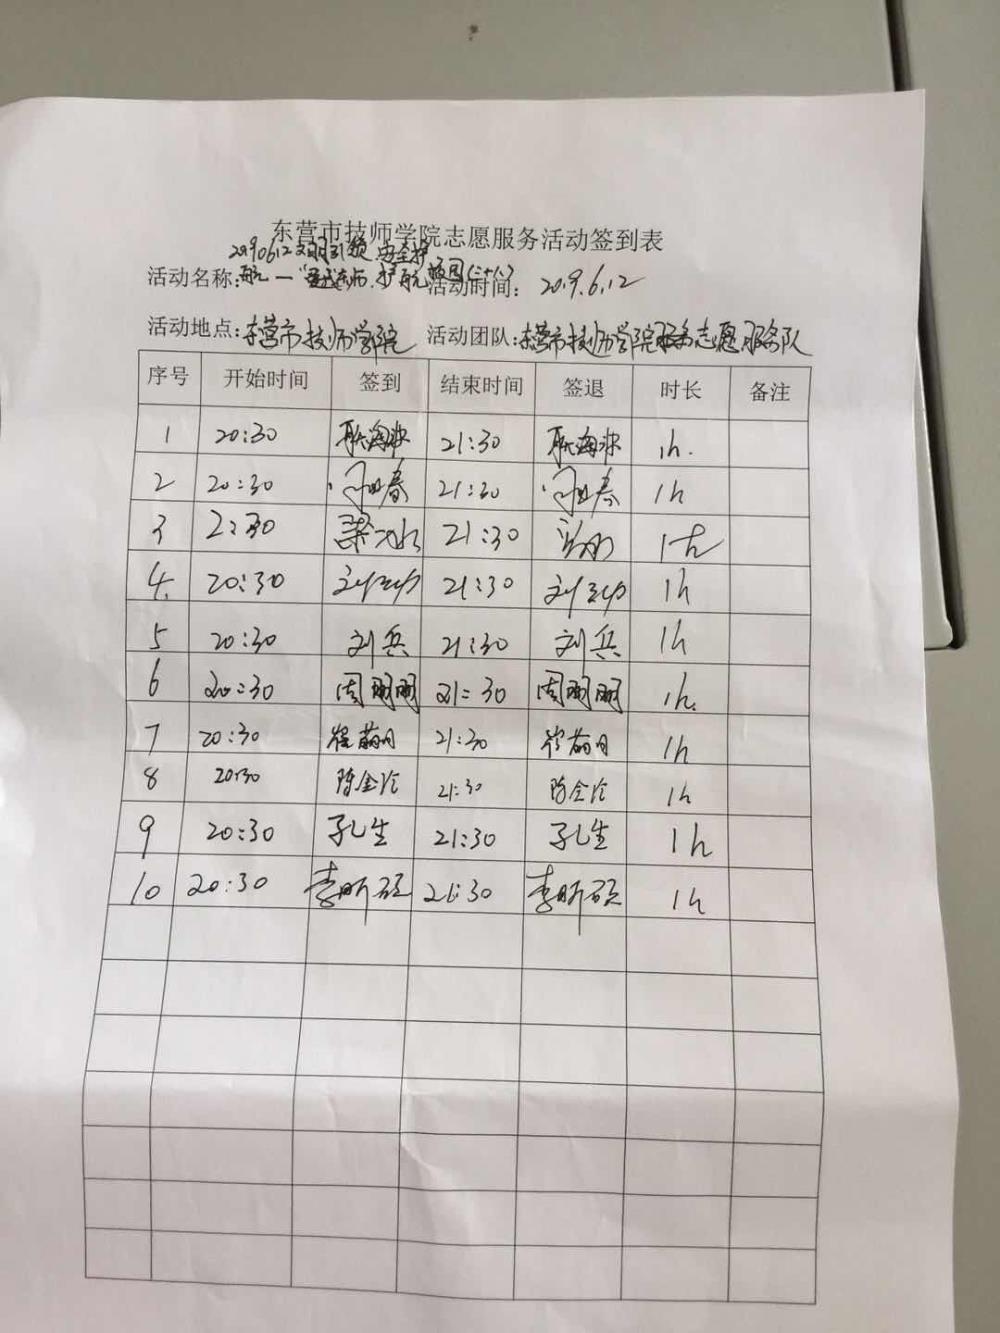 东营市技师学院志愿服务活动签到表
20190612文明引领,安全护
活动名称:航一 护航校园 活动时间: 2019.6.12
活动地点:东营市技师学院 活动团队:东营市技师学院服务志愿服务队
序号 开始时间 签到 结束时间 签退 时长 备注
1 20:30 21:30 1h.
2 20:30 21:30 1h
3 2:30 21:30 1h
4. 20:30 21:30 1h
5 20:30 刘兵 21:30 刘兵 1h
6 20:30 周明明 21:30 周明明 1h.
7 20:30 21:30 1h
8 20:30 陈金 21:30 陈金 1h
9 20:30 孔生 21:30 孔生 1h
10 20:30 李昕硕 21:30 李昕硕 1h